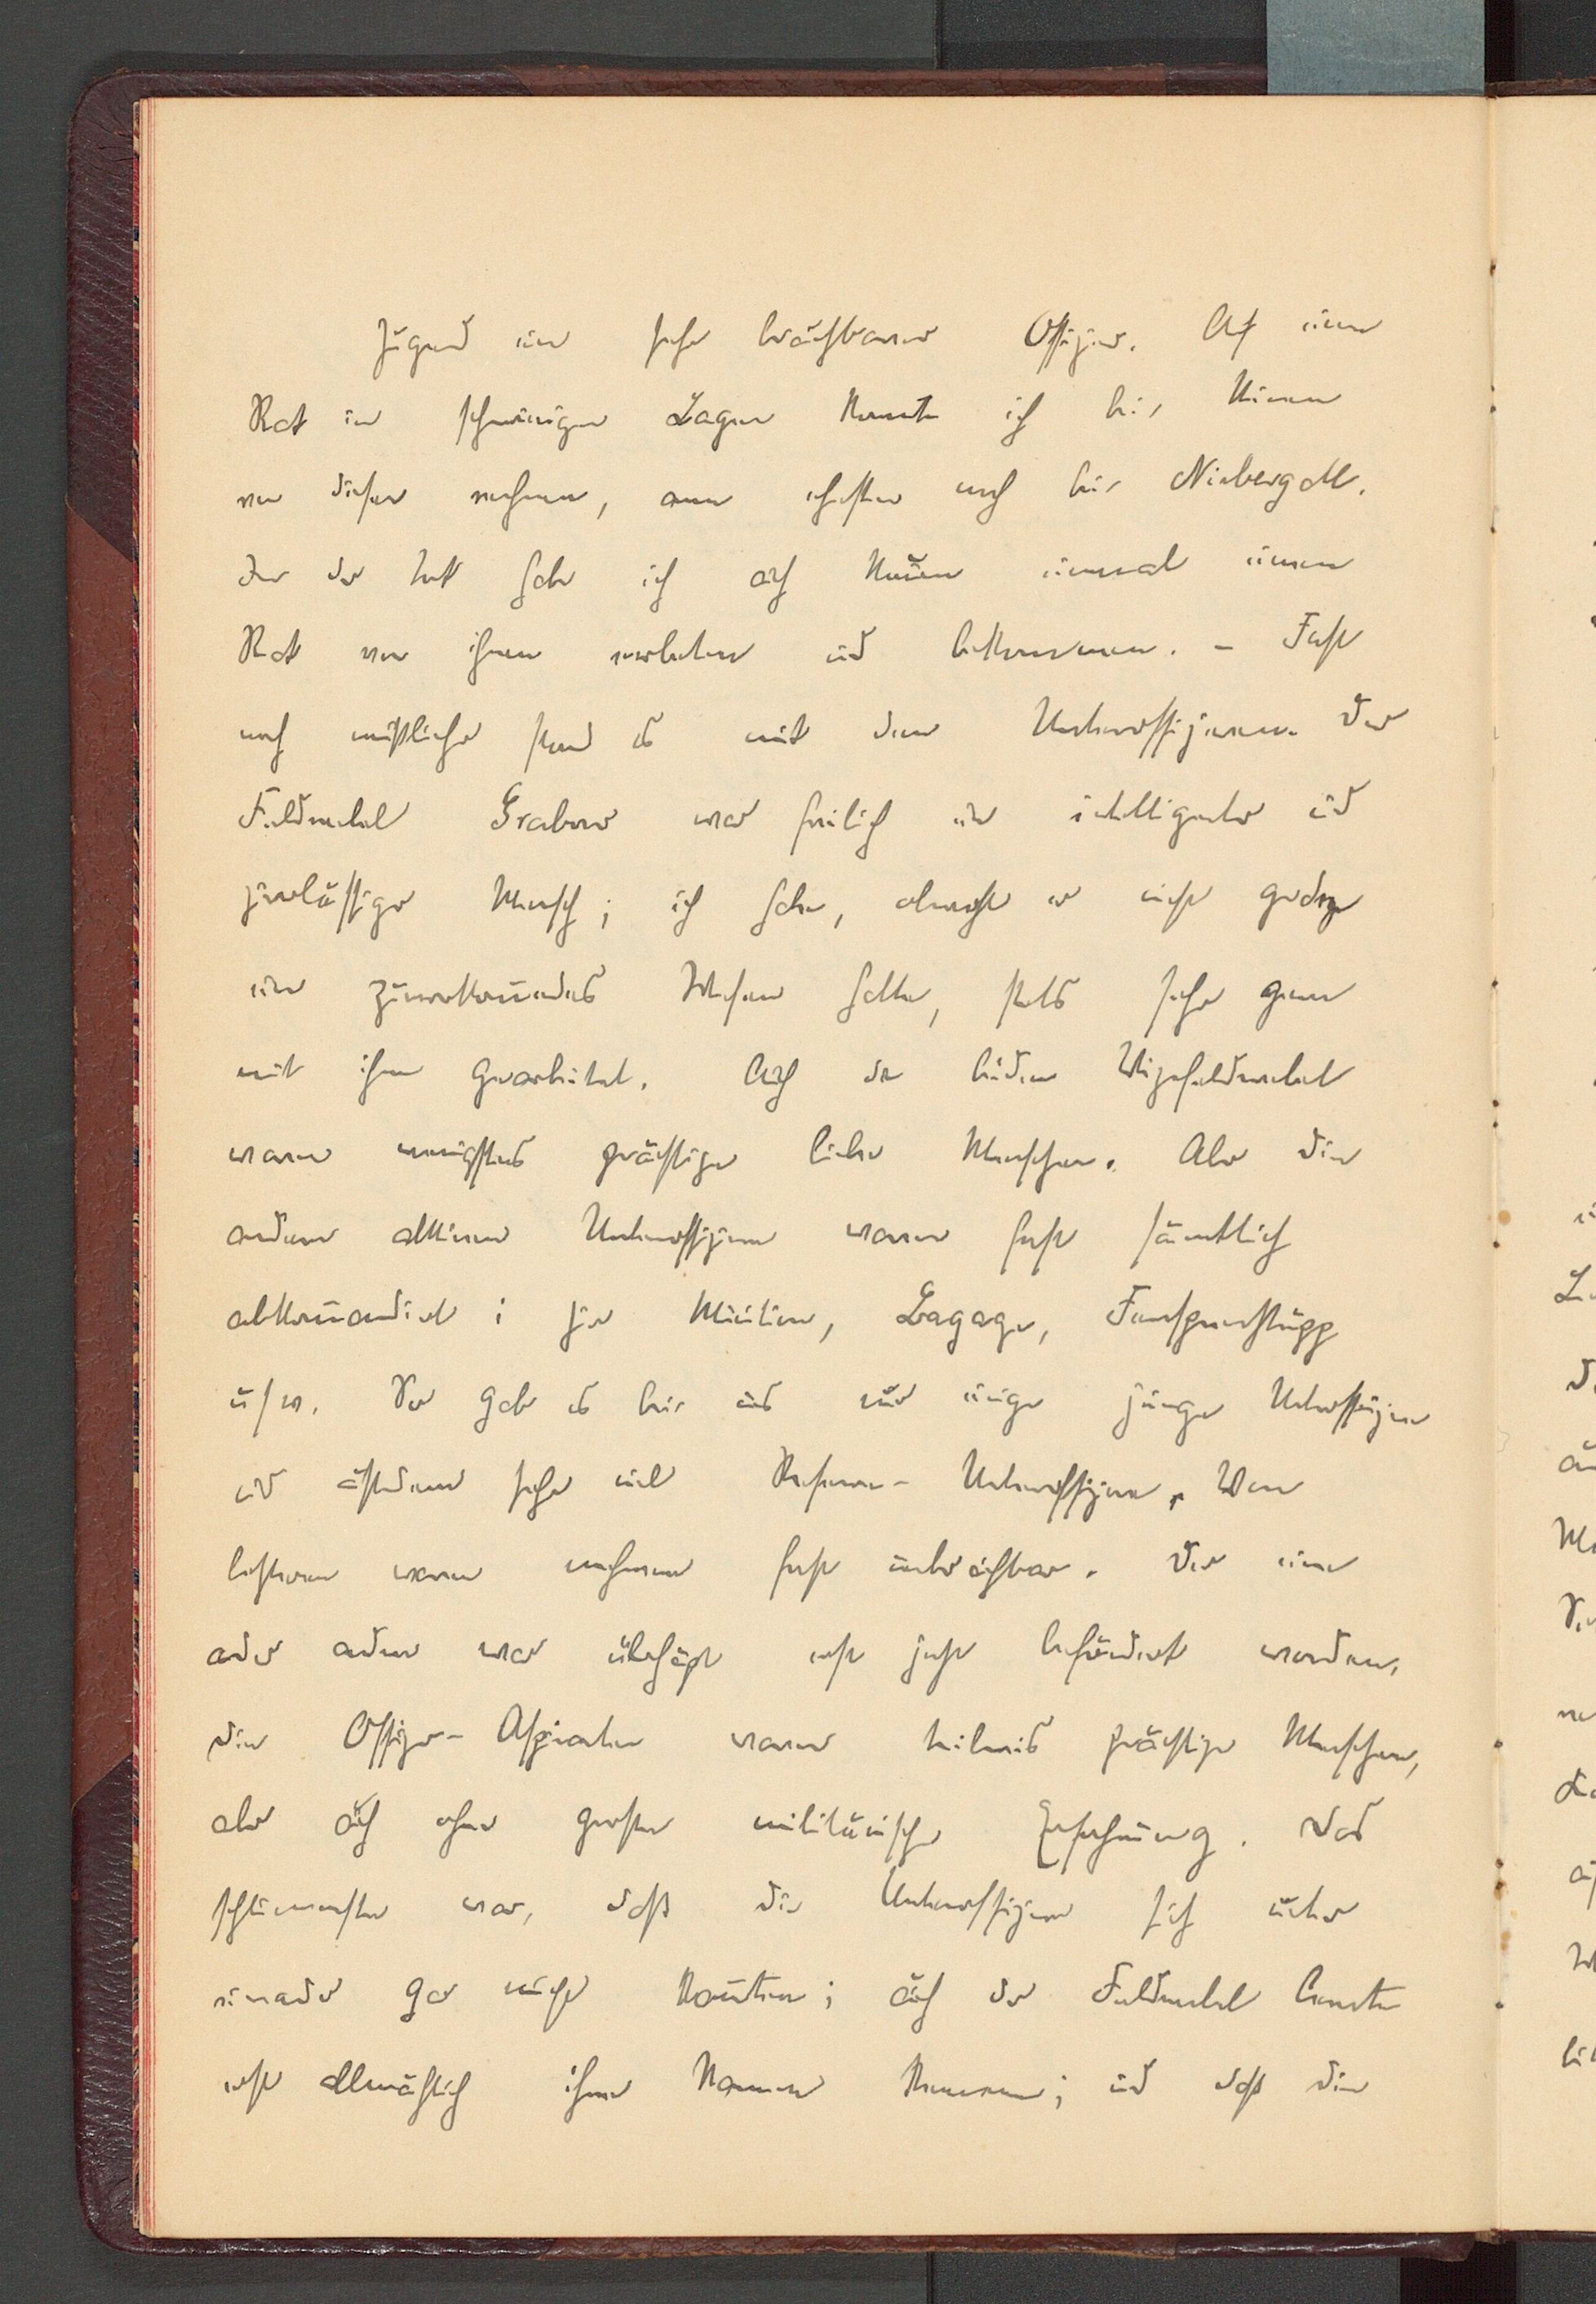 Jugend ein sehr brauchbarer Offizier. Auf einen
Rat in schwierigen Lagen konnte ich bei keinem
von diesen rechnen, am ehesten noch bei Niebergall.
In der Tat habe ich auch kaum einmal einen
Rat von ihnen erbeten und bekommen. – Fast
noch mißlicher stand es mit den Unteroffizieren. Der
Feldwebel Grabow war freilich ein intelligenter und
zuverlässiger Mensch; ich habe, obwohl er nicht gerade
ein zuvorkommendes Wesen hatte, stets sehr gern
mit ihm gearbeitet. Auch die beiden Vizefeldwebel
waren wenigstens prächtige liebe Menschen. Aber die
anderen aktiven Unteroffiziere waren fast sämtlich
abkommandiert; zur Minen, Bagage, Fernsprechtrupp
usw. So gab es bei uns nur einige junge Unteroffiziere
und außerdem sehr viel Reserve-Unteroffiziere. Von
letzteren waren mehrere fast unbrauchbar. Der eine
oder andere war überhaupt erst jetzt befördert worden,
die Offizier-Aspiranten waren teilweis prächtige Menschen,
aber auch ohne große militärische Erfahrung. Das
schlimmste war, daß die Unteroffiziere sich unter
einander gar nicht kannten; auch der Feldwebel lernte
erst allmählich ihre Namen kennen; und daß die